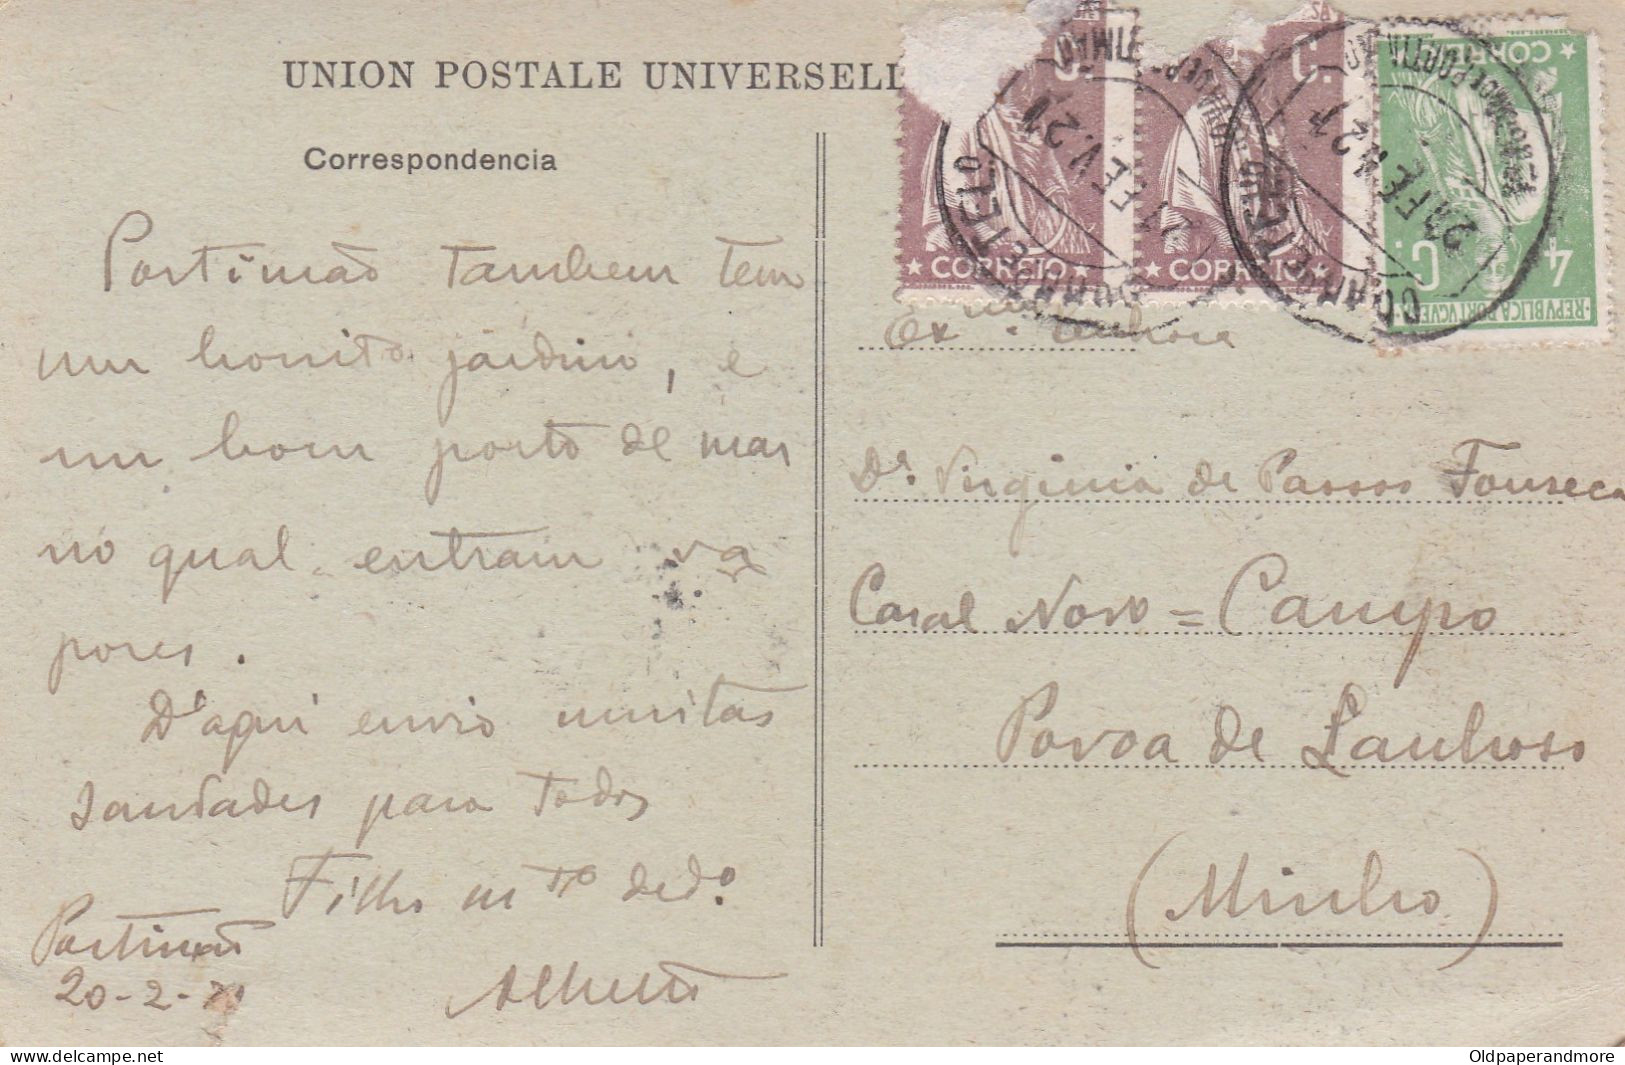 UNION POSTALE UNIVERSELL
Correspondencia
Portimão tambem tem
um bonito jardim, e
um bom porto de mar
no qual entram va
pores.
D'aqui envio muitas
saudades para todos
Filho mto dedo.
Portimão
20-2-21
Alberto
CORREIO
CORREIO
C.
CORREIO
4 C.
REPVBLICA PORTVGVESA
21 FEV. 21
21 FEV. 21
Exma Senhora
Da. Virginia de Passos Fonseca
Casal Novo = Campo
Povoa de Lanhoso
(Minho)
Oldpaperandmore
delcampe.net